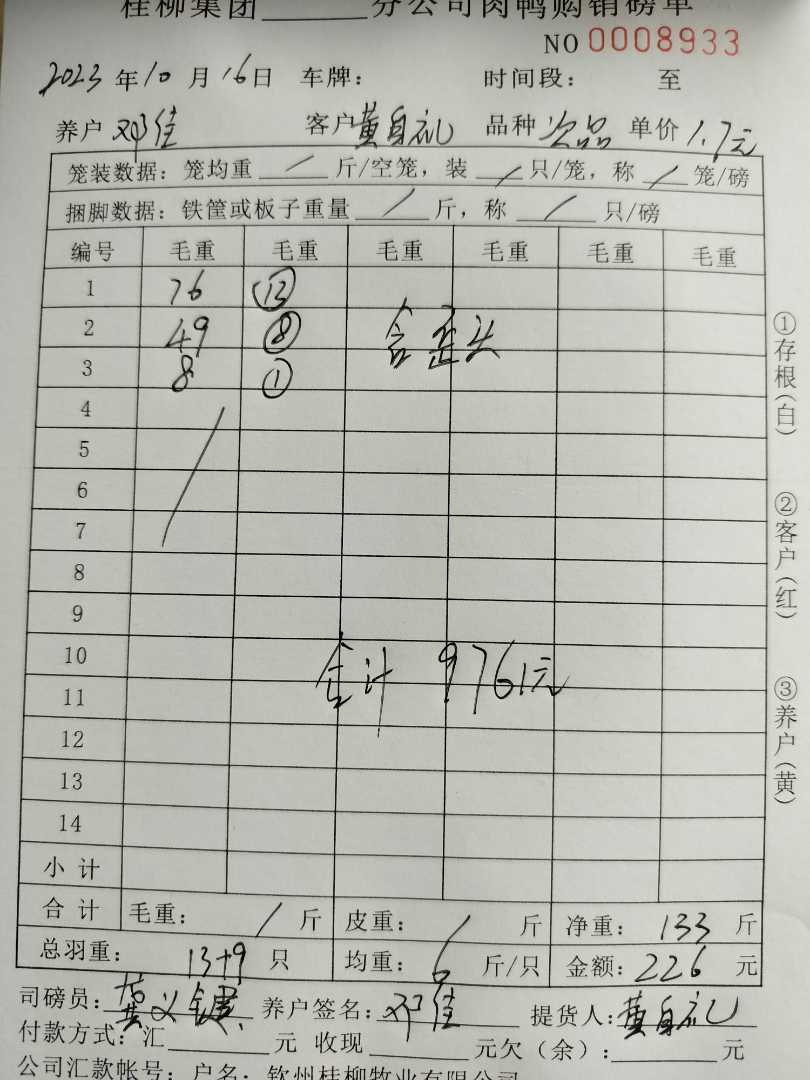 桂柳集团______分公司肉鸭购销磅单
NO 0008933
2023 年 10 月 16 日 车牌： 时间段： 至
养户 邓佳 客户 黄自礼 品种 次品 单价 1.7元
笼装数据：笼均重 / 斤/空笼，装 / 只/笼，称 / 笼/磅
捆脚数据：铁筐或板子重量 / 斤，称 / 只/磅
编号 毛重 毛重 毛重 毛重 毛重 毛重
1 76 ⑫
2 49 ⑧ 含歪头
3 8 ①
4
5
6
7
8
9
10
合计 9761元
11
12
13
14
小计
合计 毛重： / 斤 皮重： / 斤 净重： 133 斤
总羽重： 13+9 只 均重： 6 斤/只 金额： 226 元
司磅员： 养户签名： 邓佳 提货人： 黄自礼
付款方式：汇______元 收现______元欠（余）：______元
公司汇款帐号：户名：钦州桂柳牧业有限公司
①存根(白)
②客户(红)
③养户(黄)